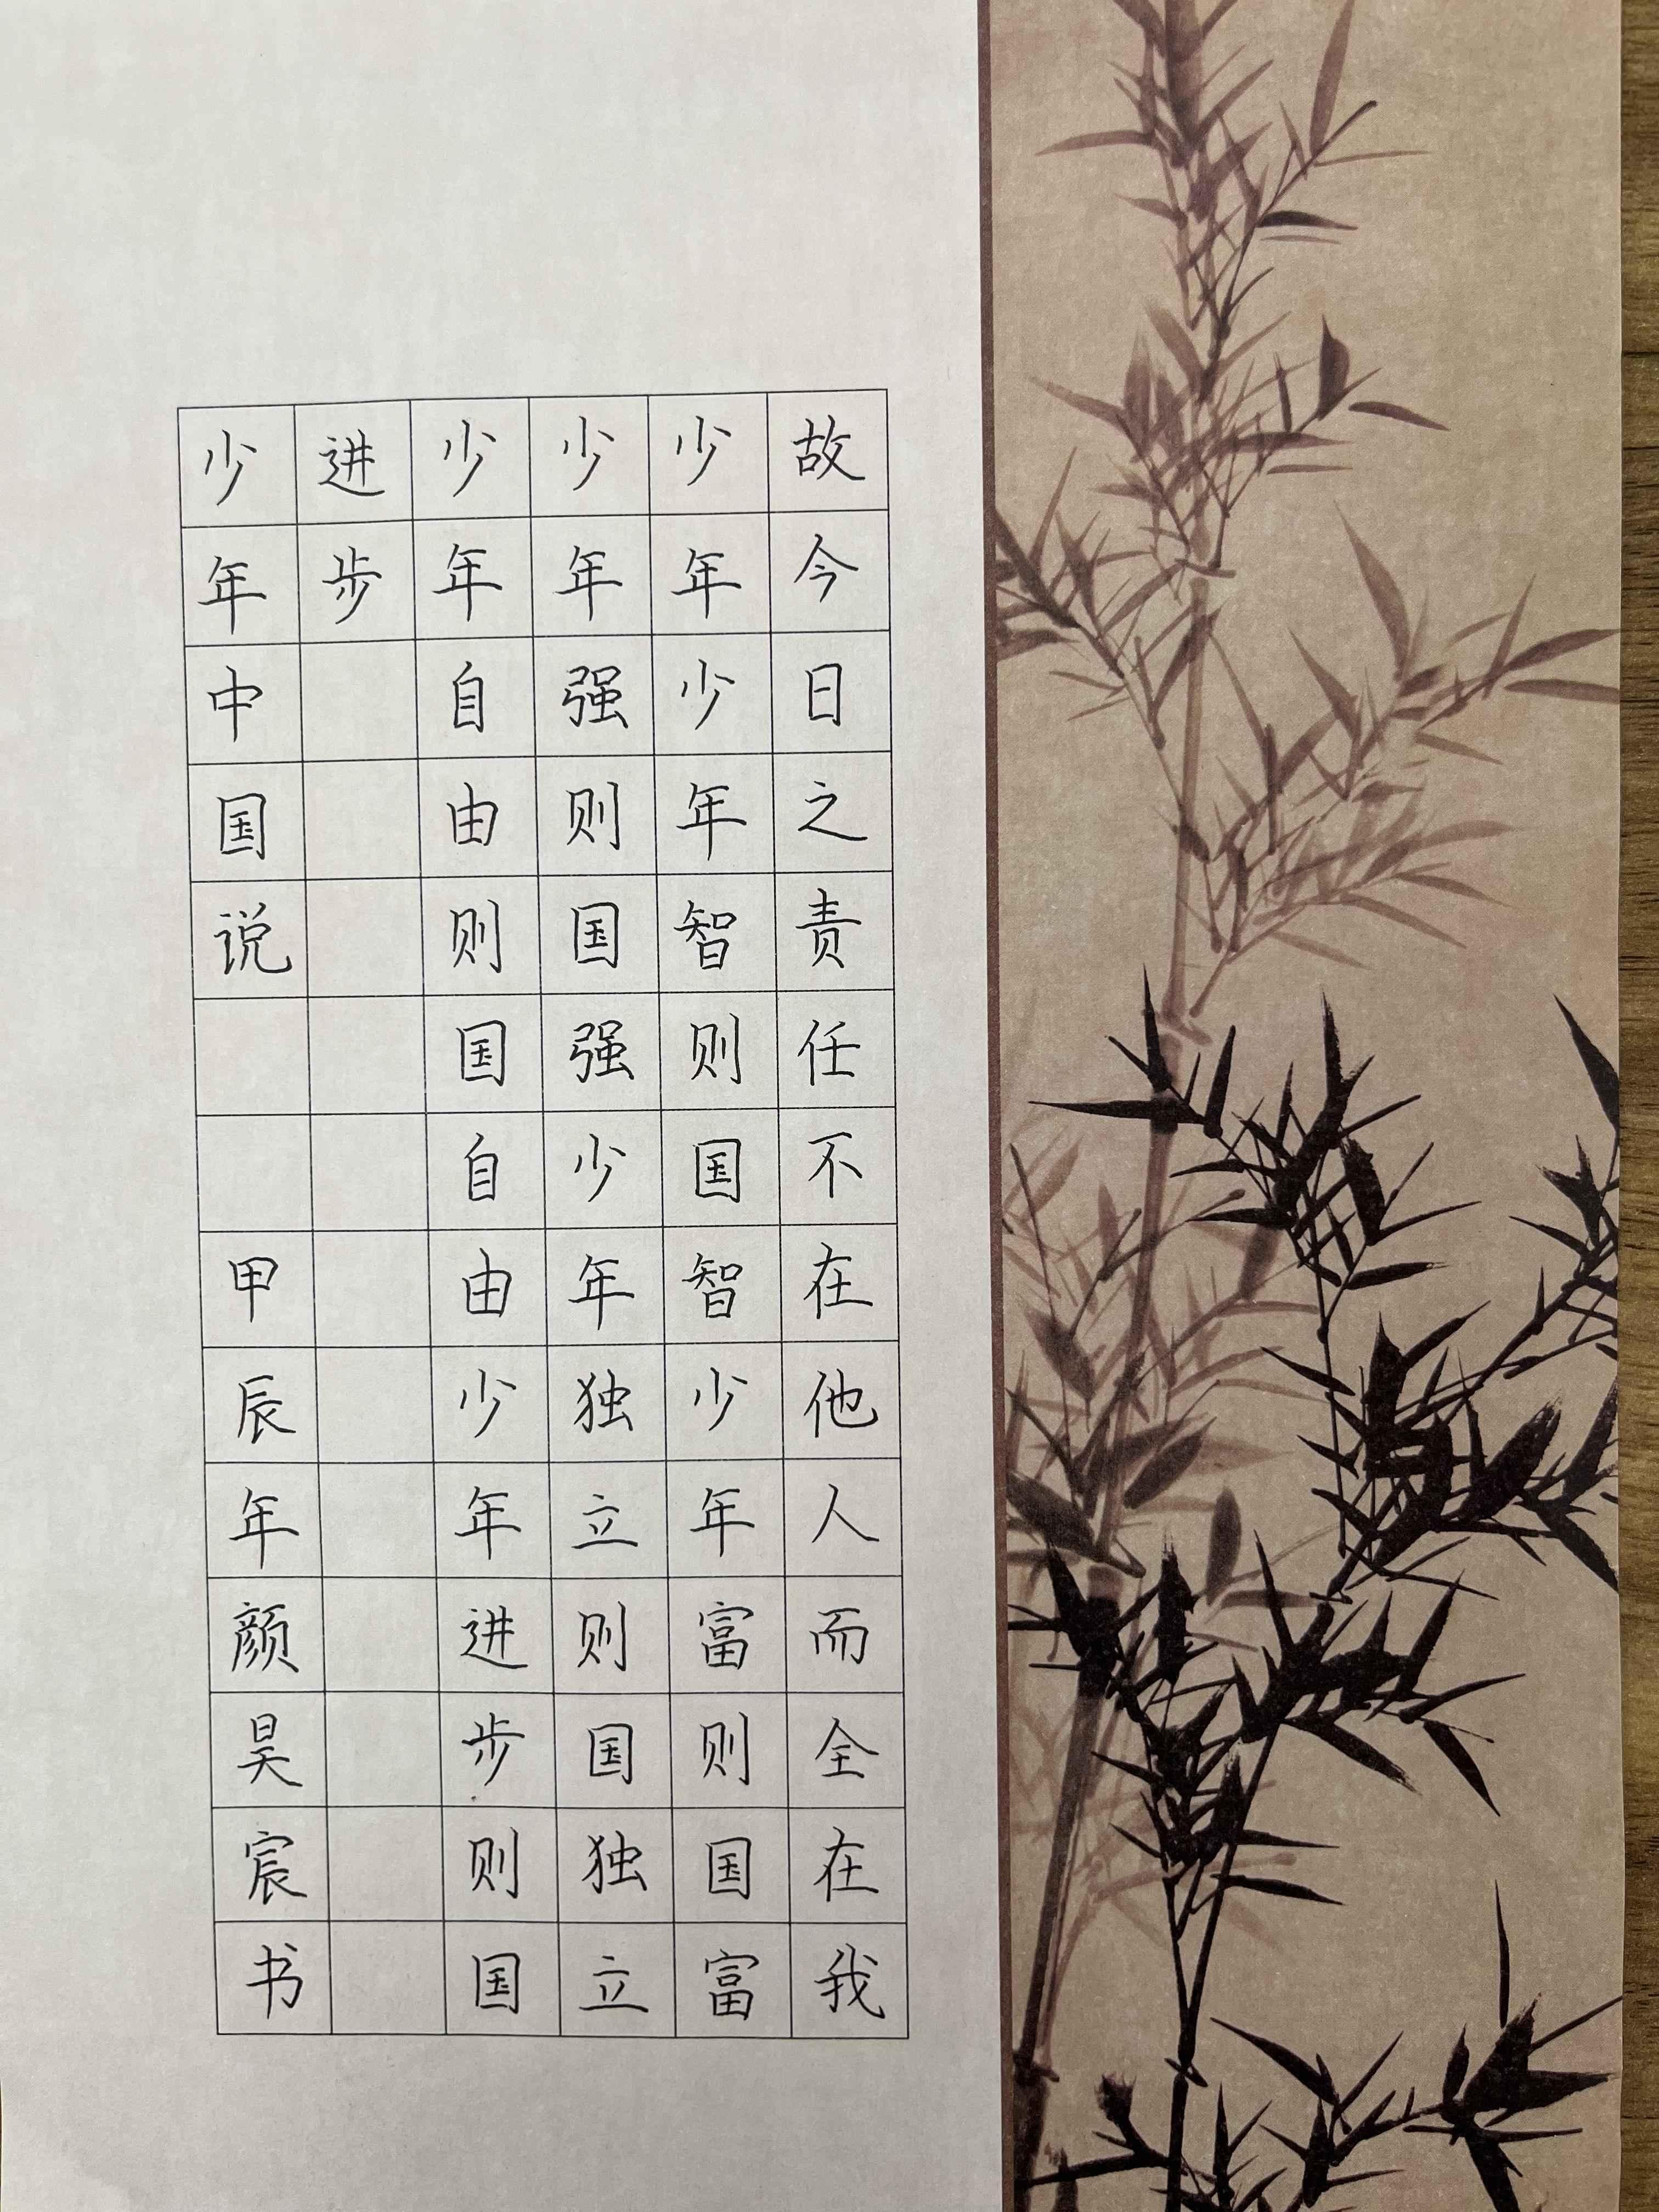 故今日之责任不在他人而全在我
少年少年智则国智少年富则国富
少年强则国强少年独立则国独立
少年自由则国自由少年进步则国
进步
少年中国说 甲辰年颜昊宸书